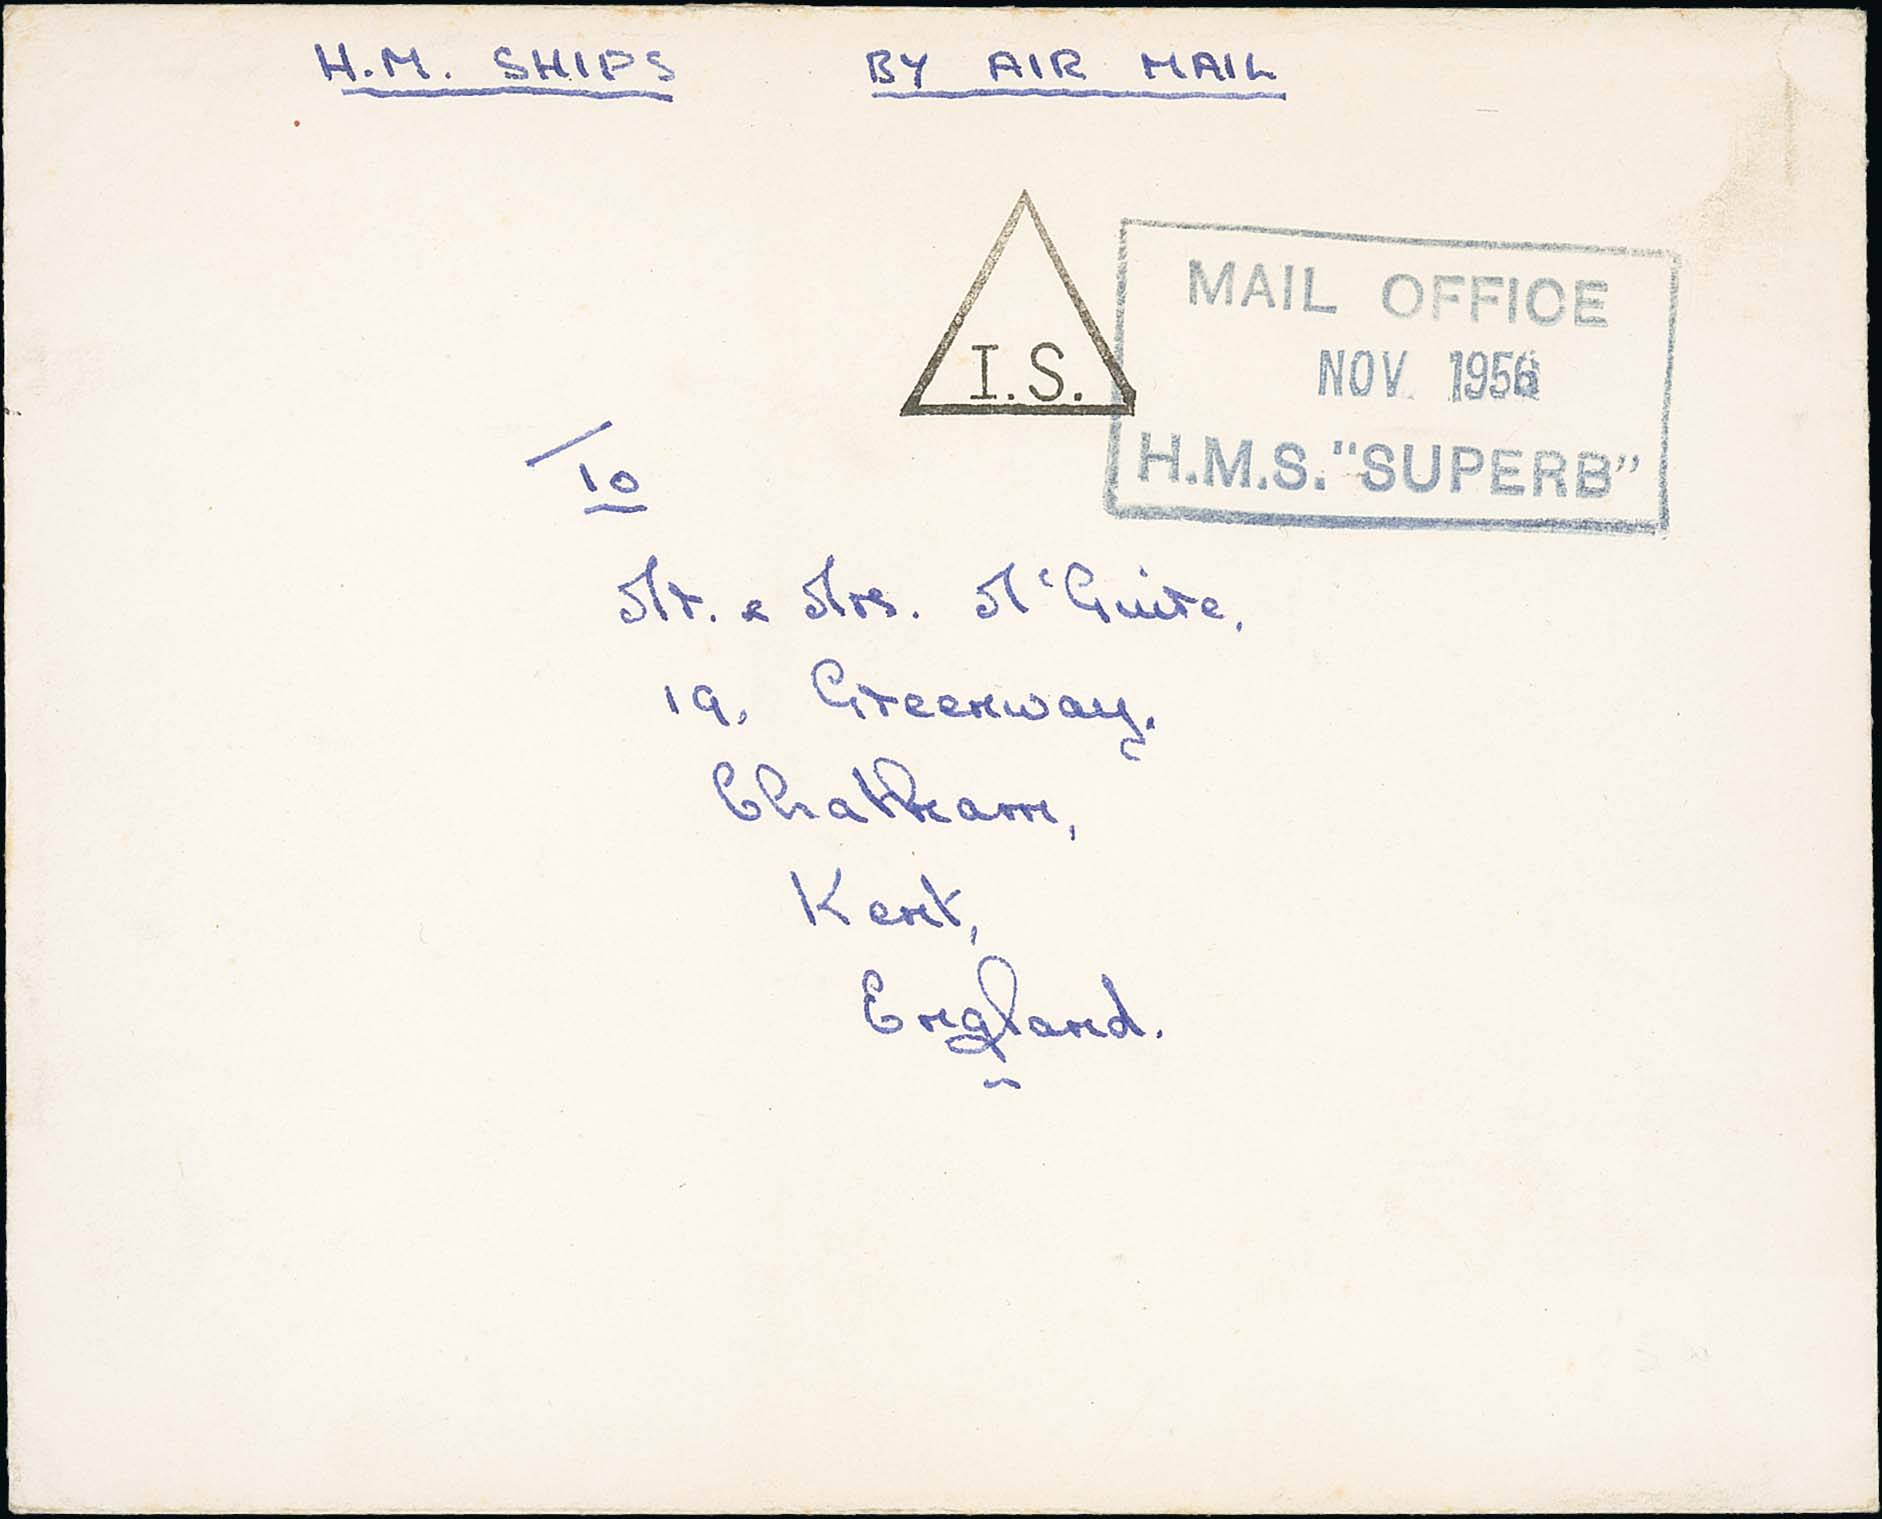 H.M. SHIPS BY AIR MAIL
I.S.
MAIL OFFICE
NOV. 1956
H.M.S. "SUPERB"
To
Mr. & Mrs. M'Guire,
19. Greenway.
Chatham,
Kent,
England.